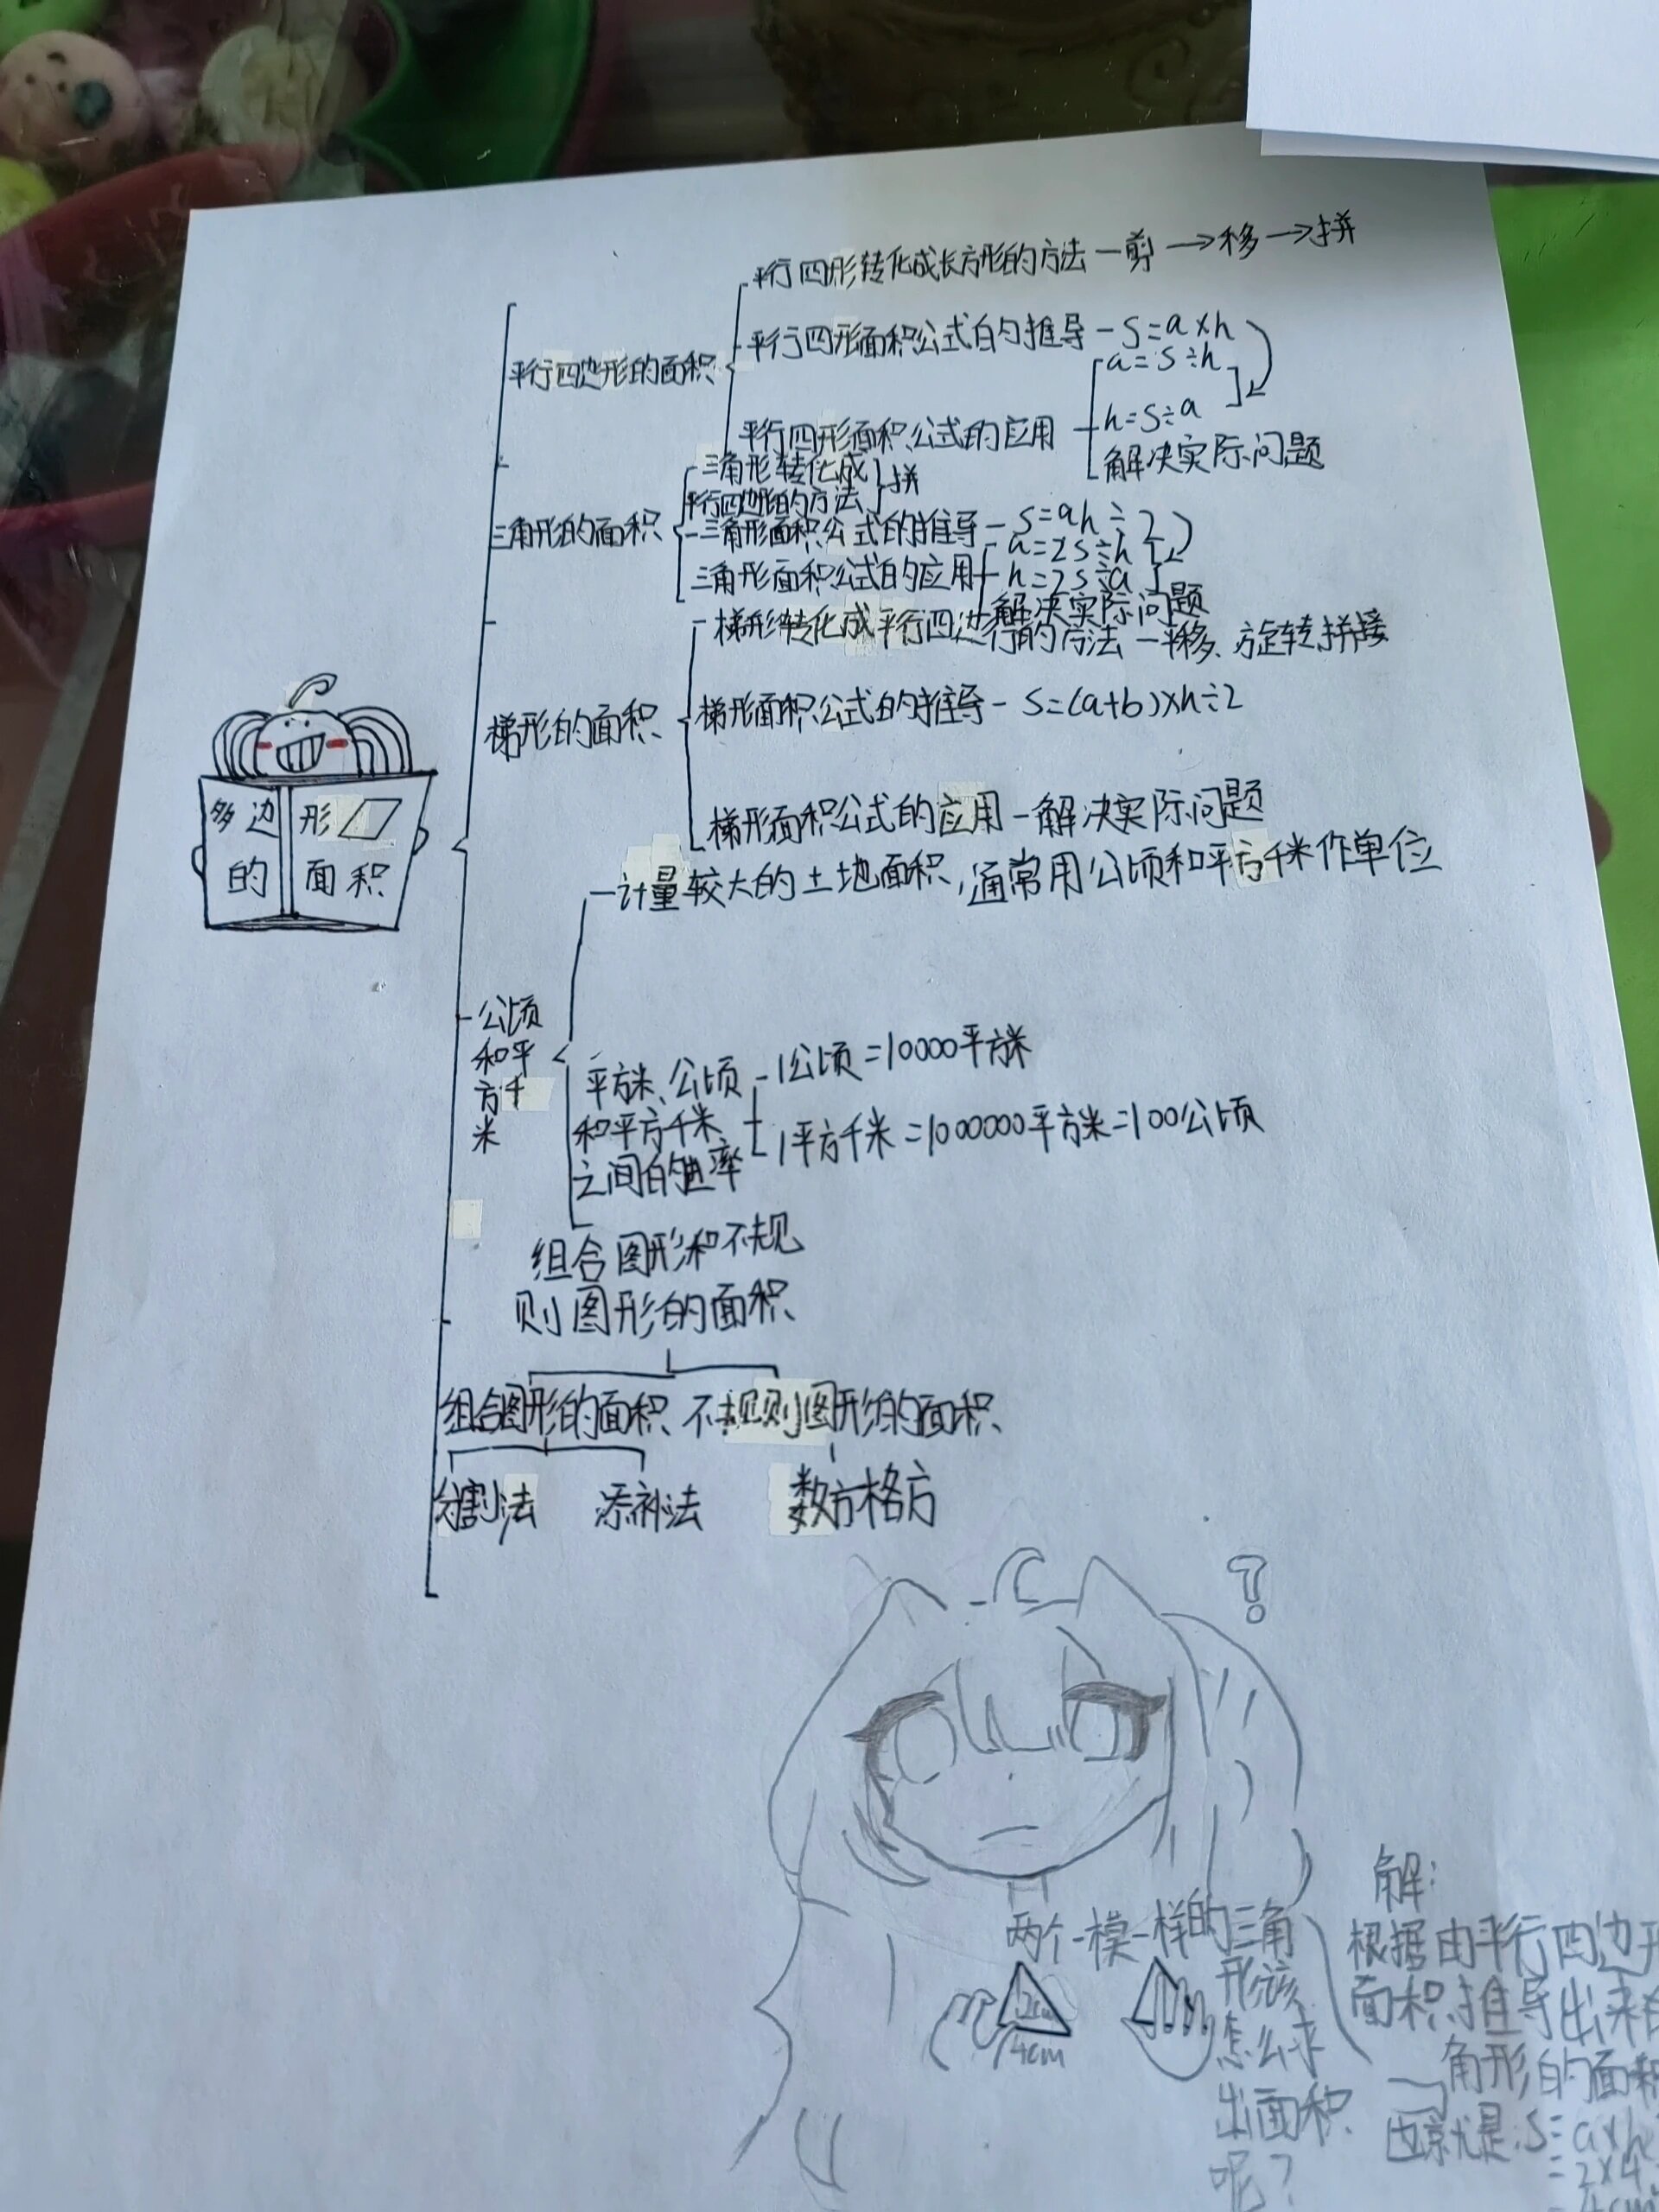 多边形
的面积
平行四边形的面积
平行四形转化成长方形的方法—剪→移→拼
平行四形面积公式的推导—S=a×h
平行四形面积公式的应用
a=S÷h
h=S÷a
解决实际问题
三角形的面积
三角形转化成
平行四边形的方法
拼
三角形面积公式的推导—S=ah÷2
三角形面积公式的应用
a=2S÷h
h=2S÷a
解决实际问题
梯形的面积
梯形转化成平行四边行的方法—平移、旋转拼接
梯形面积公式的推导—S=(a+b)×h÷2
梯形面积公式的应用—解决实际问题
公顷
和平
方千
米
计量较大的土地面积,通常用公顷和平方千米作单位
平方米、公顷
和平方千米
之间的进率
1公顷=10000平方米
1平方千米=1000000平方米=100公顷
组合图形和不规
则图形的面积
组合图形的面积
不规则图形的面积
分割法
添补法
数方格方
?
两个一模一样的三角
形该
怎么求
出面积
呢?
2cm
4cm
解:
根据由平行四边形
面积推导出来的
三角形的面积
也就是:S=a×h
=2×4